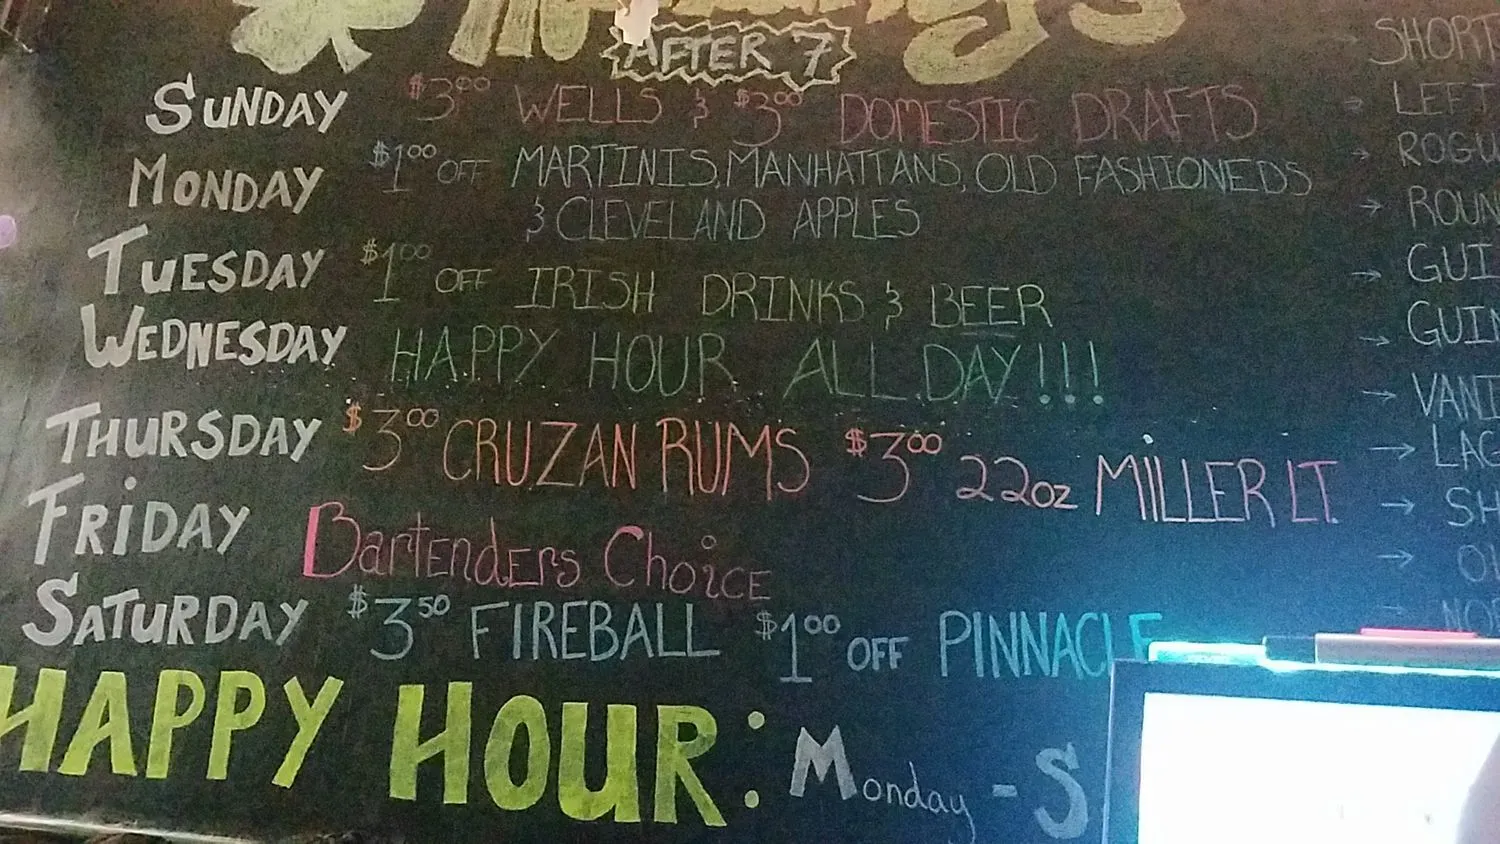 AFTER 7
SUNDAY $3.00 WELLS & $3.00 DOMESTIC DRAFTS
MONDAY $1.00 OFF MARTINIS, MANHATTANS, OLD FASHIONEDS
& CLEVELAND APPLES
TUESDAY $1.00 OFF IRISH DRINKS & BEER
WEDNESDAY HAPPY HOUR ALL DAY!!!
THURSDAY $3.00 CRUZAN RUMS $3.00 22oz MILLER LT.
FRIDAY Bartenders Choice
SATURDAY $3.50 FIREBALL $1.00 OFF PINNACLE
HAPPY HOUR: Monday - S
SHORTS
LEFT
ROGU
ROUN
GUI
GUIN
VANI
LAG
SH
OL
NOR